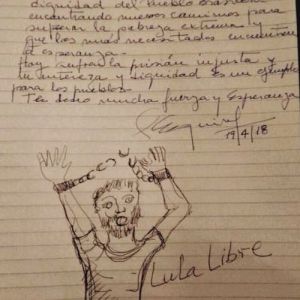 dignidad del Pueblo Brasileño
encontrando nuevos caminos para
superar la pobreza extrema y
que los más necesitados encuentren
la esperanza.
Hoy sufren la prisión injusta y
tu entereza y dignidad es un ejemplo
para los pueblos.
Te deseo mucha fuerza y Esperanza
19/4/18
Lula Libre